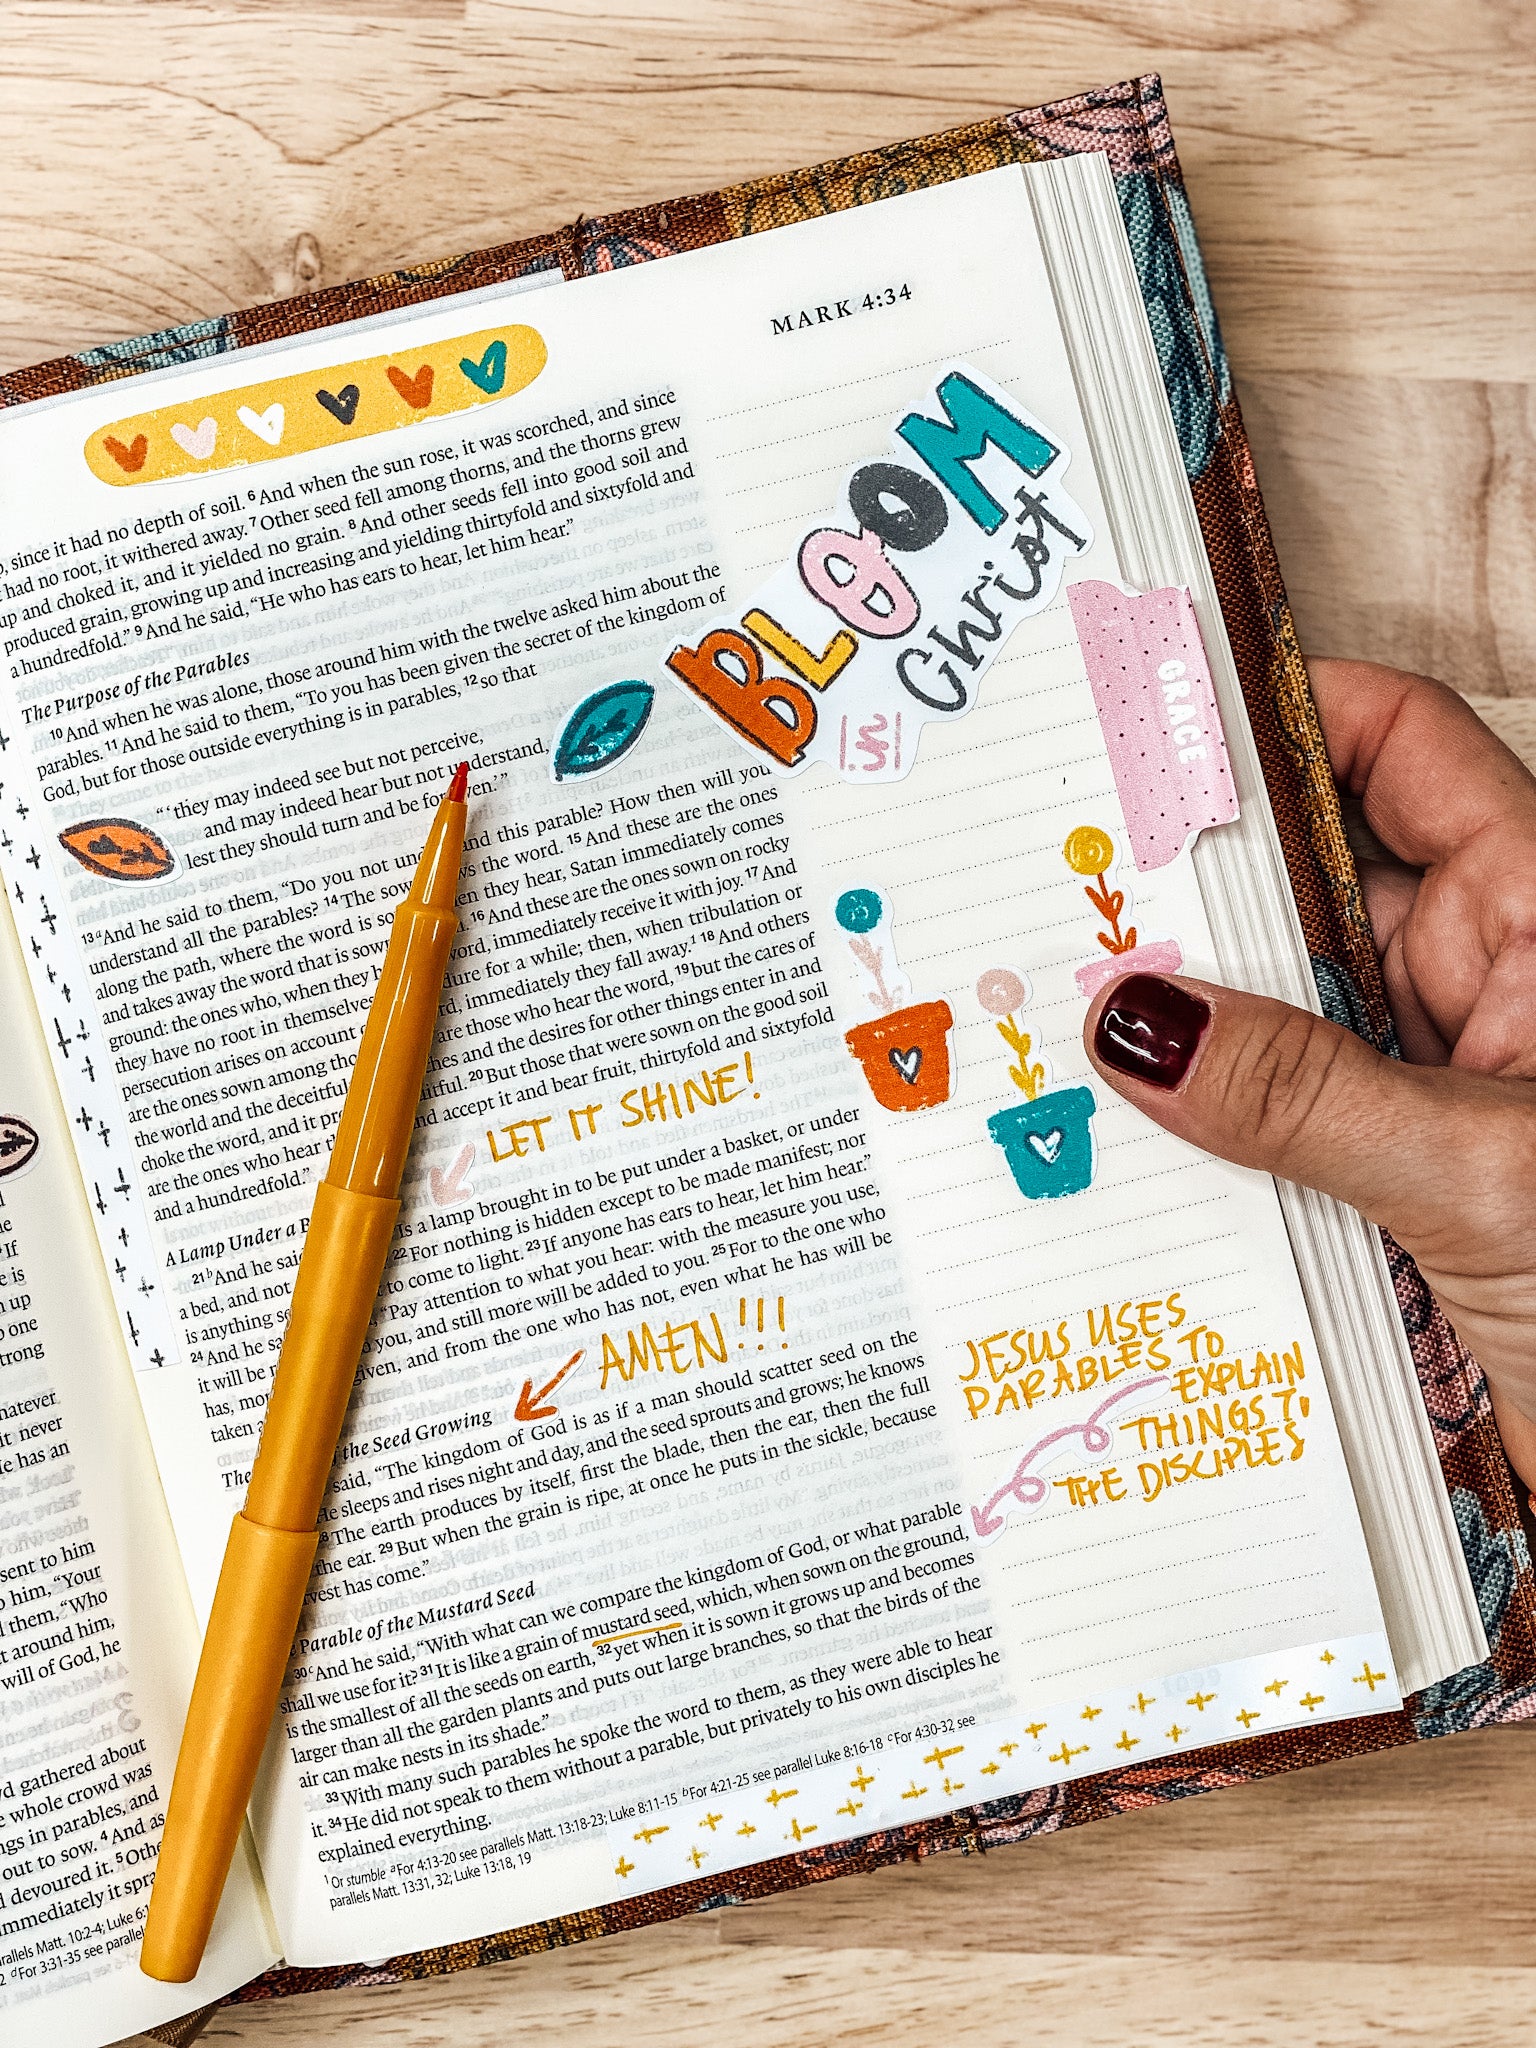 MARK 4:34
, since it had no depth of soil. 6 And when the sun rose, it was scorched, and since
had no root, it withered away. 7 Other seed fell among thorns, and the thorns grew
up and choked it, and it yielded no grain. 8 And other seeds fell into good soil and
produced grain, growing up and increasing and yielding thirtyfold and sixtyfold and
a hundredfold.” 9 And he said, “He who has ears to hear, let him hear.”
The Purpose of the Parables
10 And when he was alone, those around him with the twelve asked him about the
parables. 11 And he said to them, “To you has been given the secret of the kingdom of
God, but for those outside everything is in parables, 12 so that
“‘they may indeed see but not perceive,
and may indeed hear but not understand,
lest they should turn and be forgiven.’”
13 a And he said to them, “Do you not und and this parable? How then will you
understand all the parables? 14 The sow ws the word. 15 And these are the ones
along the path, where the word is so en they hear, Satan immediately comes
and takes away the word that is sown 16 And these are the ones sown on rocky
ground: the ones who, when they h word, immediately receive it with joy. 17 And
they have no root in themselves dure for a while; then, when tribulation or
persecution arises on account rd, immediately they fall away. 1 18 And others
are the ones sown among tho are those who hear the word, 19 but the cares of
the world and the deceitful ches and the desires for other things enter in and
choke the word, and it pr uitful. 20 But those that were sown on the good soil
are the ones who hear th nd accept it and bear fruit, thirtyfold and sixtyfold
and a hundredfold.”
LET IT SHINE!
A Lamp Under a B
21 b And he said Is a lamp brought in to be put under a basket, or under
a bed, and not 22 For nothing is hidden except to be made manifest; nor
is anything se to come to light. 23 If anyone has ears to hear, let him hear.”
24 And he sa “Pay attention to what you hear: with the measure you use,
it will be you, and still more will be added to you. 25 For to the one who
has, mor given, and from the one who has not, even what he has will be
taken
AMEN!!!
The the Seed Growing
said, “The kingdom of God is as if a man should scatter seed on the
He sleeps and rises night and day, and the seed sprouts and grows; he knows
The earth produces by itself, first the blade, then the ear, then the full
the ear. 29 But when the grain is ripe, at once he puts in the sickle, because
vest has come.”
e Parable of the Mustard Seed
30 c And he said, “With what can we compare the kingdom of God, or what parable
shall we use for it? 31 It is like a grain of mustard seed, which, when sown on the ground,
is the smallest of all the seeds on earth, 32 yet when it is sown it grows up and becomes
larger than all the garden plants and puts out large branches, so that the birds of the
air can make nests in its shade.”
33 With many such parables he spoke the word to them, as they were able to hear
it. 34 He did not speak to them without a parable, but privately to his own disciples he
explained everything.
1 Or stumble a For 4:13-20 see parallels Matt. 13:18-23; Luke 8:11-15 b For 4:21-25 see parallel Luke 8:16-18 c For 4:30-32 see
parallels Matt. 13:31, 32; Luke 13:18, 19
BLOOM
in
Christ
GRACE
JESUS USES
PARABLES TO
EXPLAIN
THINGS TO
THE DISCIPLES
he
If
e is
up
o one
trong
hatever
it never
He has an
sent to him
o him, “Your
d them, “Who
t around him,
will of God, he
d gathered about
e whole crowd was
ngs in parables, and
out to sow. 4 And as
d devoured it. 5 Othe
immediately it spra
rallels Matt. 10:2-4; Luke 6:1
2 d For 3:31-35 see parallel